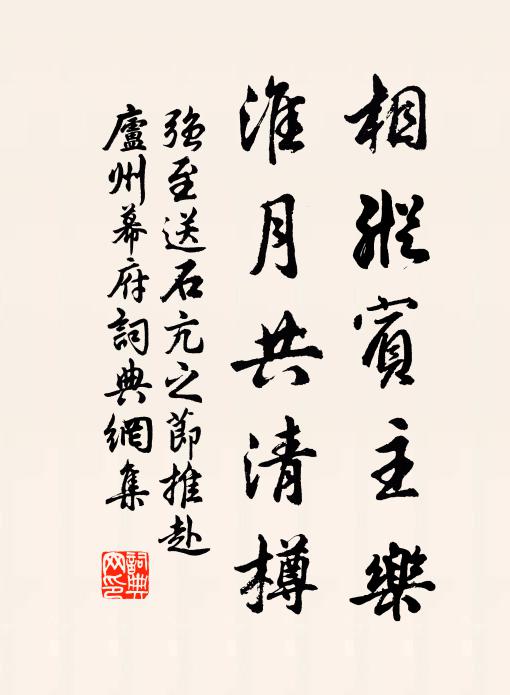 相從賓主樂
淮月共清樽
強至送石亢之節推赴
廬州幕府詞典網集
詞典網印